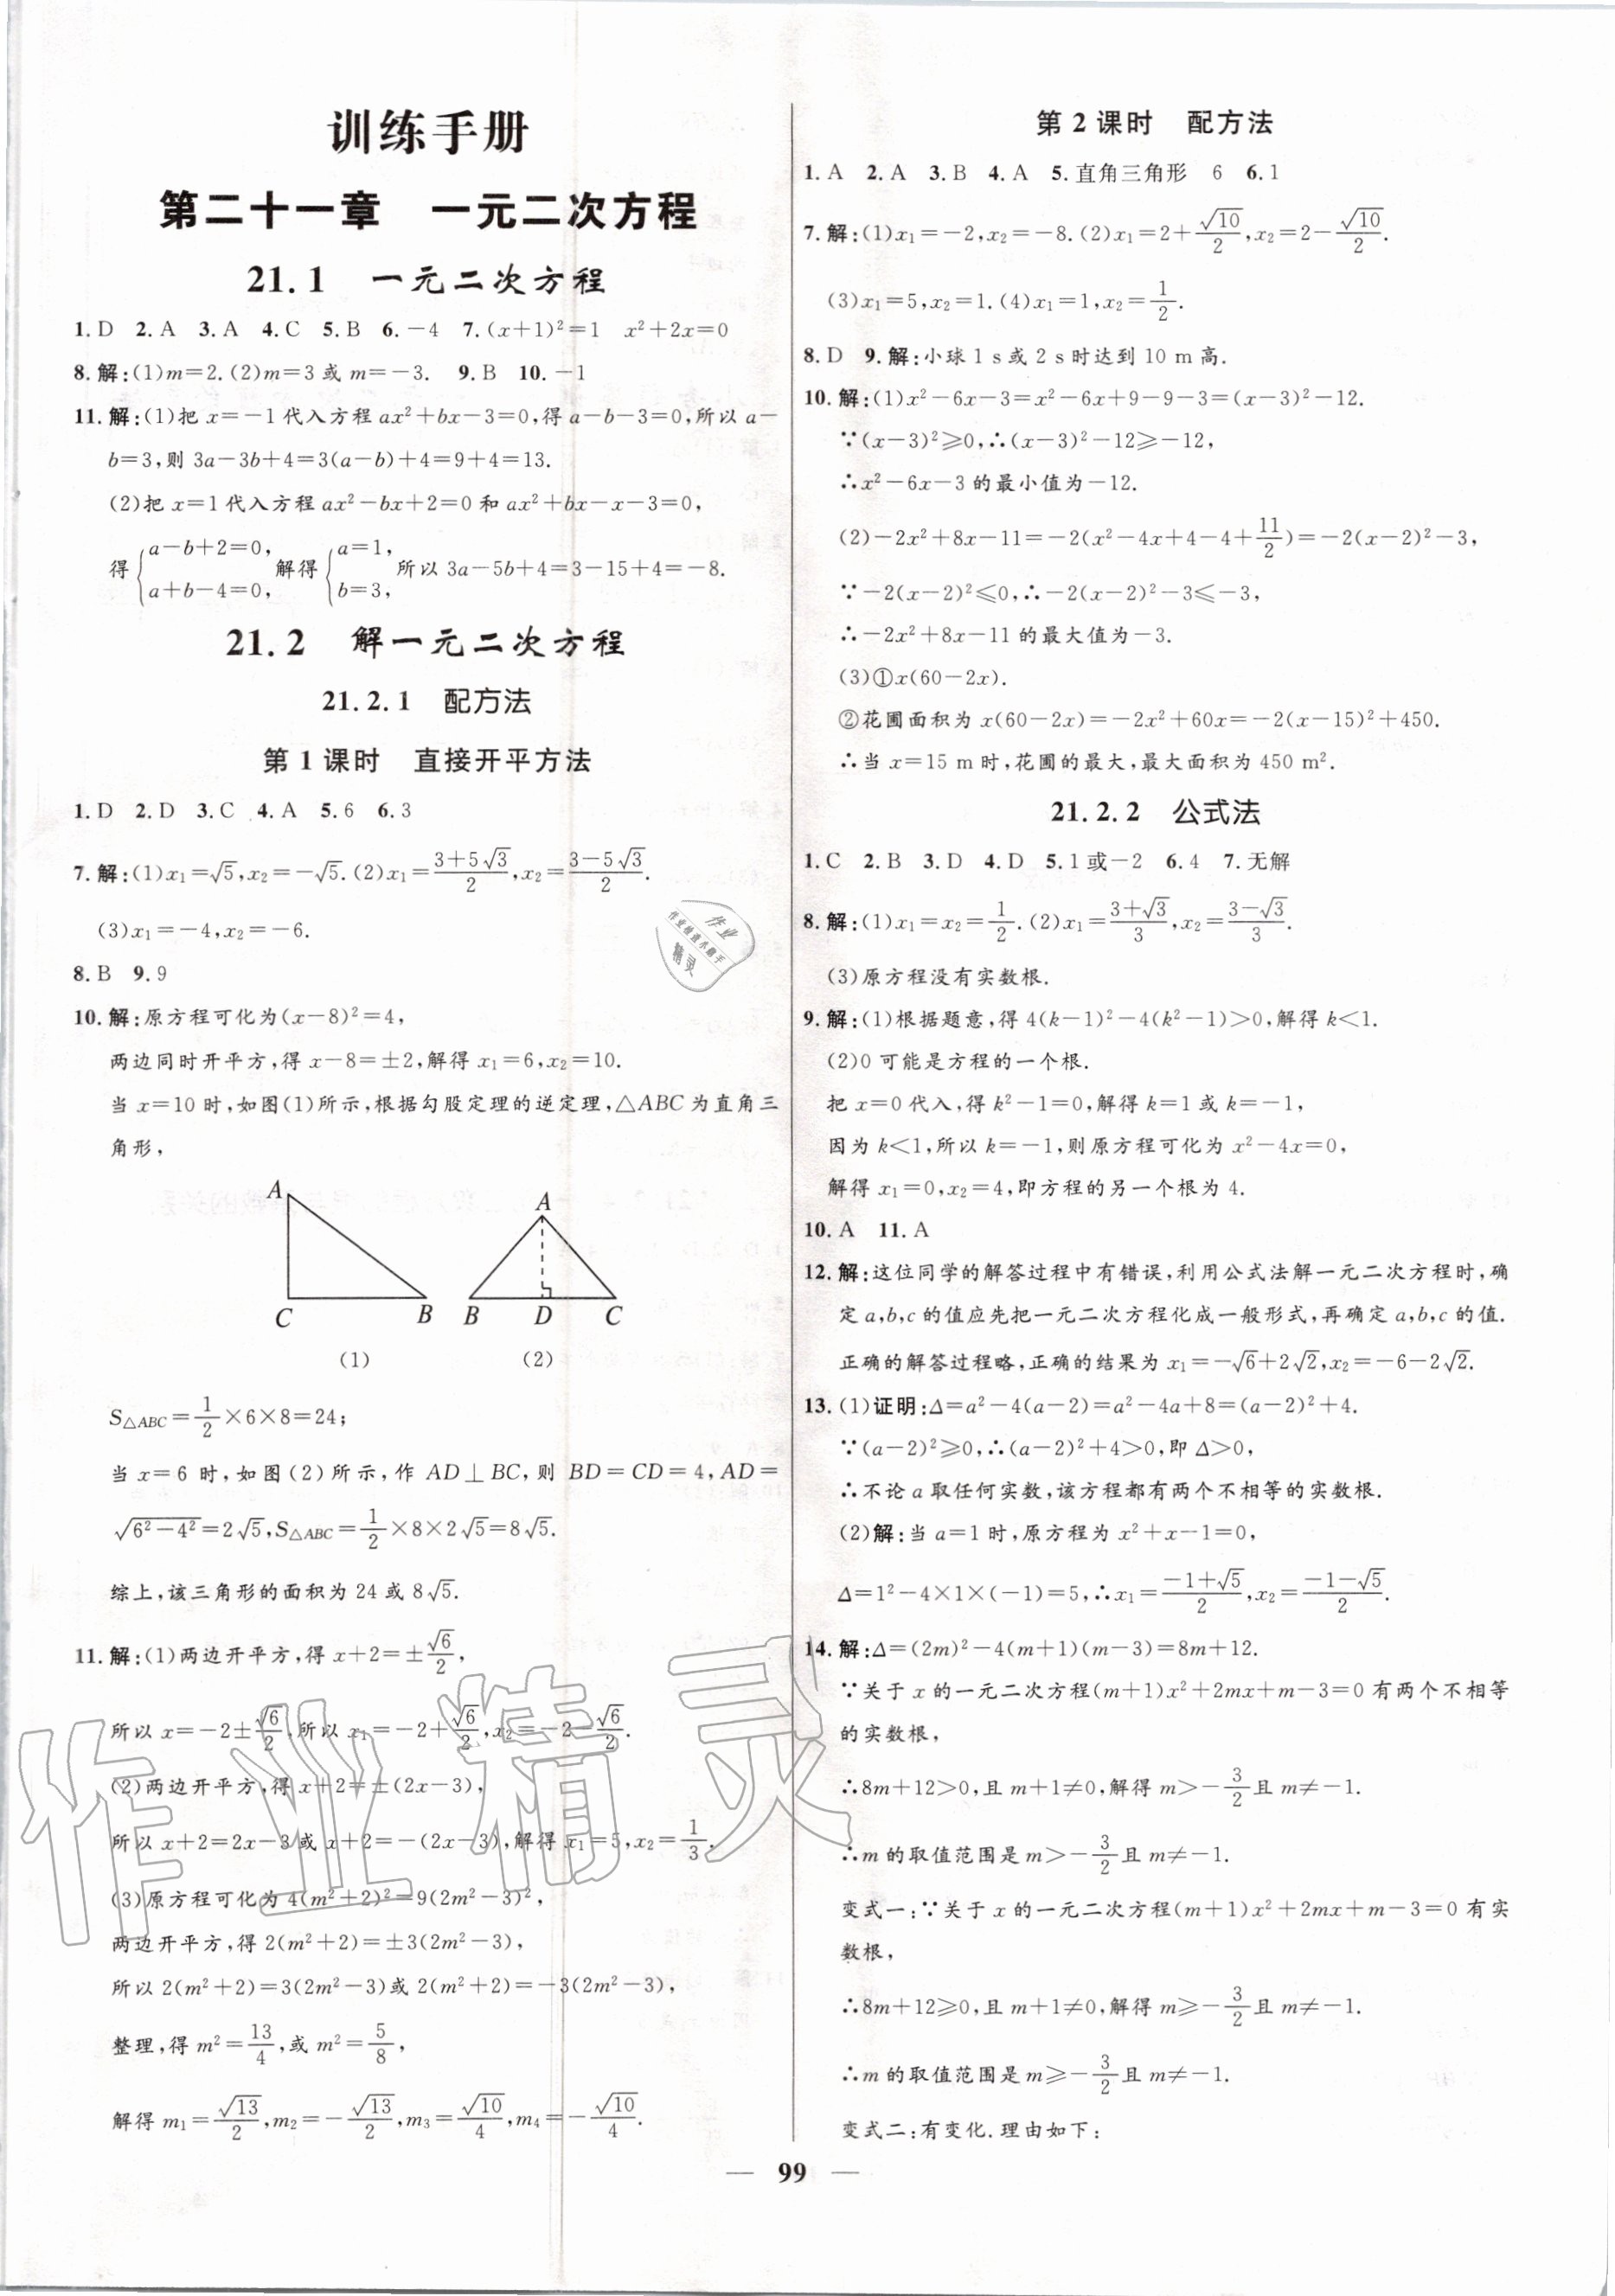 训练手册
第二十一章　一元二次方程
21.1　一元二次方程
1.D　2.A　3.A　4.C　5.B　6.－4　7.(x＋1)²＝1　x²＋2x＝0
8.解:(1)m＝2.(2)m＝3或m＝－3.　9.B　10.－1
11.解:(1)把x＝－1代入方程ax²＋bx－3＝0,得a－b－3＝0,所以a－
b＝3,则3a－3b＋4＝3(a－b)＋4＝9＋4＝13.
(2)把x＝1代入方程ax²－bx＋2＝0和ax²＋bx－x－3＝0,
得{a－b＋2＝0, a＋b－4＝0, 解得{a＝1, b＝3, 所以3a－5b＋4＝3－15＋4＝－8.
21.2　解一元二次方程
21.2.1　配方法
第1课时　直接开平方法
1.D　2.D　3.C　4.A　5.6　6.3
7.解:(1)x₁＝√5,x₂＝－√5.(2)x₁＝(3＋5√3)/2,x₂＝(3－5√3)/2.
(3)x₁＝－4,x₂＝－6.
8.B　9.9
10.解:原方程可化为(x－8)²＝4,
两边同时开平方,得x－8＝±2,解得x₁＝6,x₂＝10.
当x＝10时,如图(1)所示,根据勾股定理的逆定理,△ABC为直角三
角形,
A
C
B
(1)
A
B
D
C
(2)
S△ABC＝1/2×6×8＝24;
当x＝6时,如图(2)所示,作AD⊥BC,则BD＝CD＝4,AD＝
√(6²－4²)＝2√5,S△ABC＝1/2×8×2√5＝8√5.
综上,该三角形的面积为24或8√5.
11.解:(1)两边开平方,得x＋2＝±√6/2,
所以x＝－2±√6/2,所以x₁＝－2＋√6/2,x₂＝－2－√6/2.
(2)两边开平方,得x＋2＝±(2x－3),
所以x＋2＝2x－3或x＋2＝－(2x－3),解得x₁＝5,x₂＝1/3.
(3)原方程可化为4(m²＋2)²＝9(2m²－3)²,
两边开平方,得2(m²＋2)＝±3(2m²－3),
所以2(m²＋2)＝3(2m²－3)或2(m²＋2)＝－3(2m²－3),
整理,得m²＝13/4,或m²＝5/8,
解得m₁＝√13/2,m₂＝－√13/2,m₃＝√10/4,m₄＝－√10/4.
第2课时　配方法
1.A　2.A　3.B　4.A　5.直角三角形　6　6.1
7.解:(1)x₁＝－2,x₂＝－8.(2)x₁＝2＋√10/2,x₂＝2－√10/2.
(3)x₁＝5,x₂＝1.(4)x₁＝1,x₂＝1/2.
8.D　9.解:小球1 s或2 s时达到10 m高.
10.解:(1)x²－6x－3＝x²－6x＋9－9－3＝(x－3)²－12.
∵(x－3)²≥0,∴(x－3)²－12≥－12,
∴x²－6x－3的最小值为－12.
(2)－2x²＋8x－11＝－2(x²－4x＋4－4＋11/2)＝－2(x－2)²－3,
∵－2(x－2)²≤0,∴－2(x－2)²－3≤－3,
∴－2x²＋8x－11的最大值为－3.
(3)①x(60－2x).
②花圃面积为x(60－2x)＝－2x²＋60x＝－2(x－15)²＋450.
∴当x＝15 m时,花圃的最大,最大面积为450 m².
21.2.2　公式法
1.C　2.B　3.D　4.D　5.1或－2　6.4　7.无解
8.解:(1)x₁＝x₂＝1/2.(2)x₁＝(3＋√3)/3,x₂＝(3－√3)/3.
(3)原方程没有实数根.
9.解:(1)根据题意,得4(k－1)²－4(k²－1)＞0,解得k＜1.
(2)0可能是方程的一个根.
把x＝0代入,得k²－1＝0,解得k＝1或k＝－1,
因为k＜1,所以k＝－1,则原方程可化为x²－4x＝0,
解得x₁＝0,x₂＝4,即方程的另一个根为4.
10.A　11.A
12.解:这位同学的解答过程中有错误,利用公式法解一元二次方程时,确
定a,b,c的值应先把一元二次方程化成一般形式,再确定a,b,c的值.
正确的解答过程略,正确的结果为x₁＝－√6＋2√2,x₂＝－6－2√2.
13.(1)证明:Δ＝a²－4(a－2)＝a²－4a＋8＝(a－2)²＋4.
∵(a－2)²≥0,∴(a－2)²＋4＞0,即Δ＞0,
∴不论a取任何实数,该方程都有两个不相等的实数根.
(2)解:当a＝1时,原方程为x²＋x－1＝0,
Δ＝1²－4×1×(－1)＝5,∴x₁＝(－1＋√5)/2,x₂＝(－1－√5)/2.
14.解:Δ＝(2m)²－4(m＋1)(m－3)＝8m＋12.
∵关于x的一元二次方程(m＋1)x²＋2mx＋m－3＝0有两个不相等
的实数根,
∴8m＋12＞0,且m＋1≠0,解得m＞－3/2且m≠－1.
∴m的取值范围是m＞－3/2且m≠－1.
变式一:∵关于x的一元二次方程(m＋1)x²＋2mx＋m－3＝0有实
数根,
∴8m＋12≥0,且m＋1≠0,解得m≥－3/2且m≠－1.
∴m的取值范围是m≥－3/2且m≠－1.
变式二:有变化.理由如下:
— 99 —
作业
作业检查小助手
精灵
作业精灵